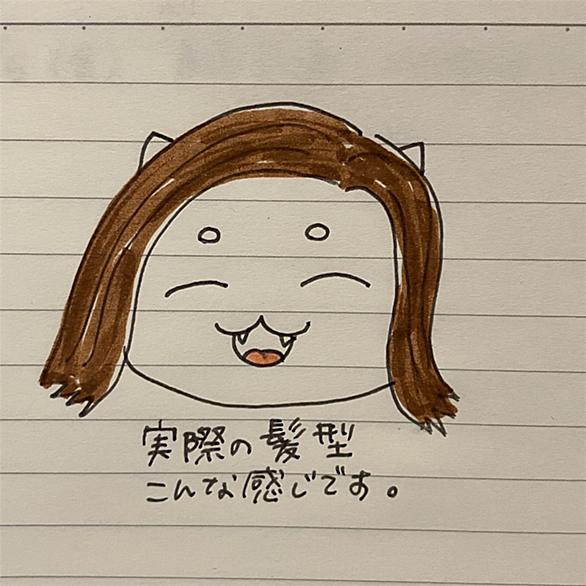 実際の髪型
こんな感じです。